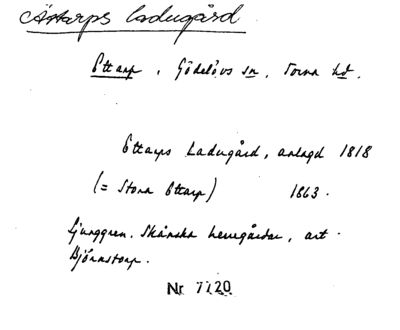 Åstarps ladugård
Ottarp, Gödelövs sn, Torna hd.
Ottarps Ladugård, anlagd 1818
(= Stora Ottarp) 1863.
Ljunggren. Skånska herregårdar, art.
Björnstorp.
Nr 7720